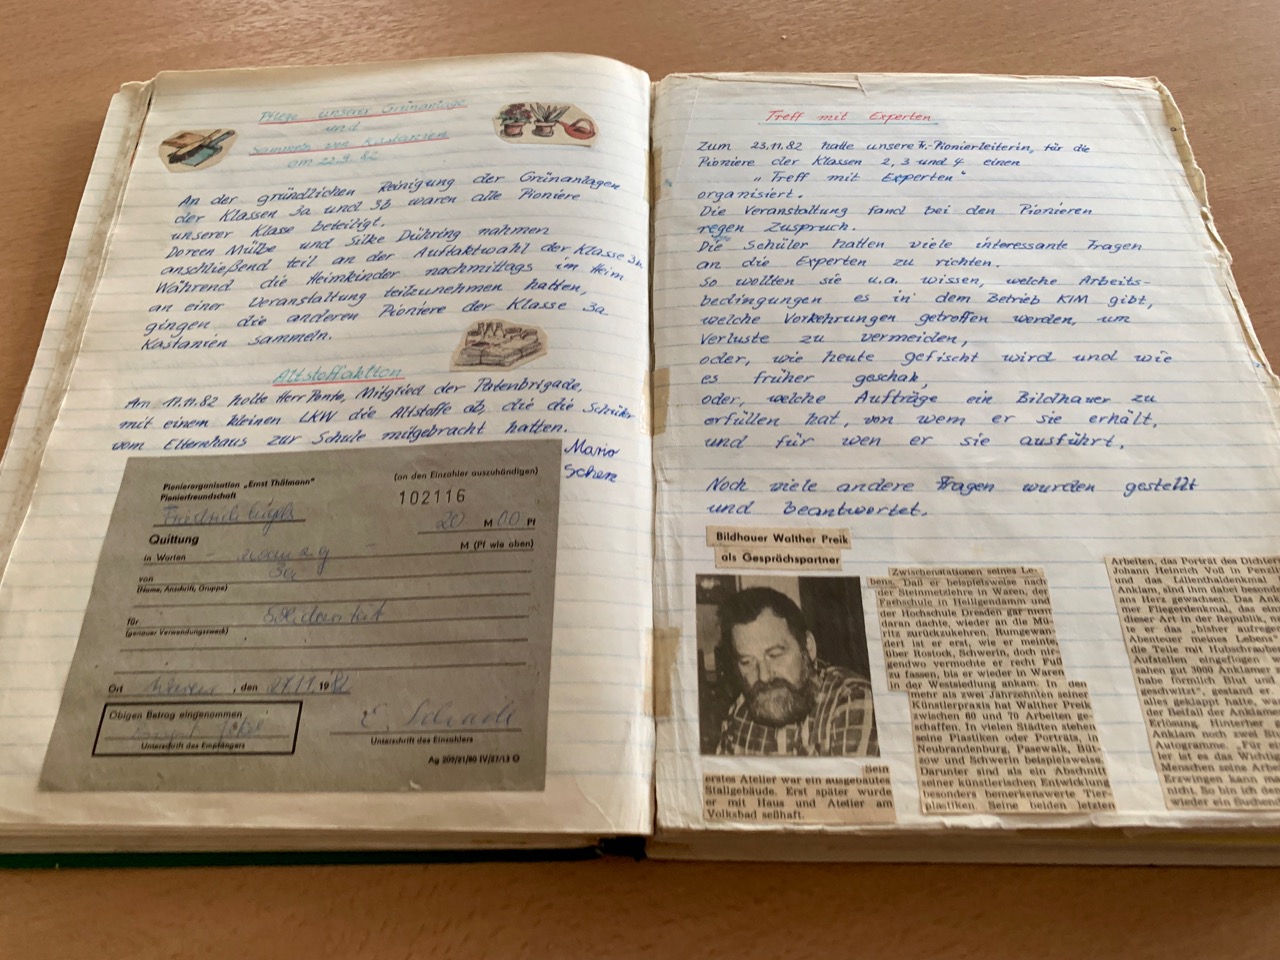 Pflege unserer Grünanlage
und
Sammeln von Kastanien
am 22.9.82
An der gründlichen Reinigung der Grünanlagen
der Klassen 3a und 3b waren alle Pioniere
unserer Klasse beteiligt.
Doreen Mülbe und Silke Dühring nahmen
anschließend teil an der Auftaktwahl der Klasse 3b.
Während die Heimkinder nachmittags im Heim
an einer Veranstaltung teilzunehmen hatten,
gingen die anderen Pioniere der Klasse 3a
Kastanien sammeln.
Altstoffaktion
Am 11.11.82 holte Herr Ponto, Mitglied der Patenbrigade,
mit einem kleinen LKW die Altstoffe ab, die die Schüler
vom Elternhaus zur Schule mitgebracht hatten.
Mario
Pionierorganisation „Ernst Thälmann"
Pionierfreundschaft
(an den Einzahler auszuhändigen)
102116
20 M 00 Pf
Quittung
in Worten - zwanzig - M (Pf wie oben)
von 3a
(Name, Anschrift, Gruppe)
für Solidarität
(genauer Verwendungszweck)
Ort Waren, den 1982
Obigen Betrag eingenommen
Unterschrift des Empfängers
Unterschrift des Einzahlers
Ag 209/21/80 IV/27/13 O
Treff mit Experten
Zum 23.11.82 hatte unsere Fr.-Pionierleiterin, für die
Pioniere der Klassen 2, 3 und 4 einen
„Treff mit Experten"
organisiert.
Die Veranstaltung fand bei den Pionieren
regen Zuspruch.
Die Schüler hatten viele interessante Fragen
an die Experten zu richten.
So wollten sie u.a. wissen, welche Arbeits-
bedingungen es in dem Betrieb KIM gibt,
welche Vorkehrungen getroffen werden, um
Verluste zu vermeiden,
oder, wie heute gefischt wird und wie
es früher geschah,
oder, welche Aufträge ein Bildhauer zu
erfüllen hat, von wem er sie erhält,
und für wen er sie ausführt.
Noch viele andere Fragen wurden gestellt
und beantwortet.
Bildhauer Walther Preik
als Gesprächspartner
Sein
erstes Atelier war ein ausgebautes
Stallgebäude. Erst später wurde
er mit Haus und Atelier am
Volksbad seßhaft.
Zwischenstationen seines Le-
bens. Daß er beispielsweise nach
der Steinmetzlehre in Waren, der
Fachschule in Heiligendamm und
der Hochschule Dresden gar nicht
daran dachte, wieder an die Mü-
ritz zurückzukehren. Rumgewan-
dert ist er erst, wie er meinte,
über Rostock, Schwerin, doch nir-
gendwo vermochte er recht Fuß
zu fassen, bis er wieder in Waren
der Westsiedlung ankam. In den
mehr als zwei Jahrzehnten seiner
Künstlerpraxis hat Walther Preik
zwischen 60 und 70 Arbeiten ge-
schaffen. In vielen Städten stehen
seine Plastiken oder Porträts, in
Neubrandenburg, Pasewalk, Büt-
zow und Schwerin beispielsweise.
Darunter sind als ein Abschnitt
seiner künstlerischen Entwicklung
besonders bemerkenswerte Tier-
plastiken. Seine beiden letzten
Arbeiten, das Porträt des Dichters
Johann Heinrich Voß in Penzlin
und das Lilienthaldenkmal in
Anklam, sind ihm dabei besonders
ans Herz gewachsen. Das Ankla-
mer Fliegerdenkmal, das
dieser Art in der Republik,
te er das „bisher
Abenteuer meines Lebens"
die Teile mit Hubschrauber
Aufstellen eingeflogen
sahen gut 3000 Anklamer
habe förmlich Blut und
geschwitzt", gestand er.
alles geklappt hatte, war
der Beifall der Anklamer
Erlösung. Hinterher
Anklam noch zwei
Autogramme. „Für
ler ist es das
Menschen seine
Erzwingen kann
nicht. So bin ich
wieder ein